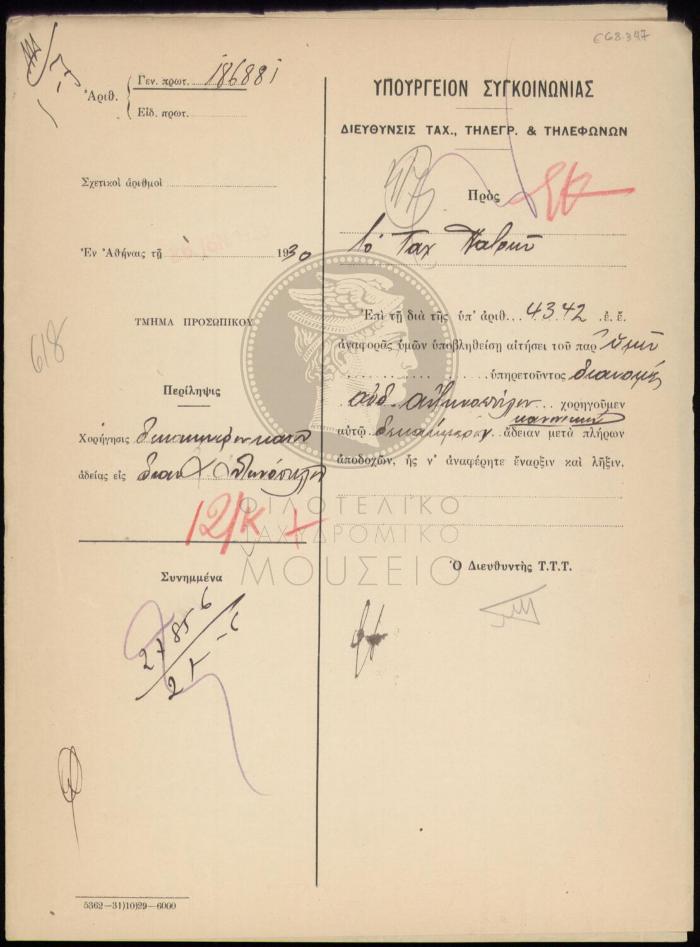 εG8.347
Ἀριθ.
Γεν. πρωτ. 186881
Εἰδ. πρωτ.
Σχετικοὶ ἀριθμοὶ
Ἐν Ἀθήναις τῇ 1930
618
ΤΜΗΜΑ ΠΡΟΣΩΠΙΚΟΥ
Περίληψις
Χορήγησις
ἀδείας εἰς
12/κ
Συνημμένα
27856
5362—31)10)29—6000
ΥΠΟΥΡΓΕΙΟΝ ΣΥΓΚΟΙΝΩΝΙΑΣ
ΔΙΕΥΘΥΝΣΙΣ ΤΑΧ., ΤΗΛΕΓΡ. & ΤΗΛΕΦΩΝΩΝ
Πρὸς
Τὸ Ταχ Πατρῶν
Ἐπὶ τῇ διὰ τῆς ὑπ' ἀριθ. 4342 ἐ. ἔ.
ἀναφορᾶς ὑμῶν ὑποβληθείσῃ αἰτήσει τοῦ παρ' ὑμῖν
ὑπηρετοῦντος διανομέως
χορηγοῦμεν
κανονικὴν
αὐτῷ δεκαήμερον ἄδειαν μετὰ πλήρων
ἀποδοχῶν, ἧς ν' ἀναφέρητε ἔναρξιν καὶ λῆξιν.
Ὁ Διευθυντὴς Τ.Τ.Τ.
ΦΙΛΟΤΕΛΙΚΟ
ΤΑΧΥΔΡΟΜΙΚΟ
ΜΟΥΣΕΙΟ